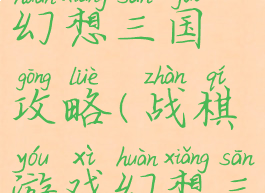 huàn xiǎng sān guó
幻想三国
gōng lüè zhàn qí
攻略(战棋
yóu xì huàn xiǎng sān
游戏幻想三